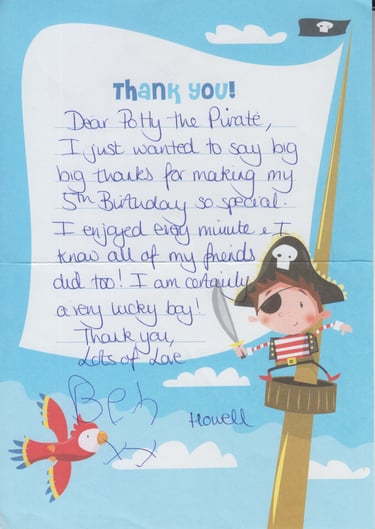 Thank you!
Dear Potty the Pirate,
I just wanted to say big
big thanks for making my
5th Birthday so special.
I enjoyed every minute & I
know all of my friends
did too! I am certainly
a very lucky boy!
Thank you,
Lots of Love
Ben
xx
Howell